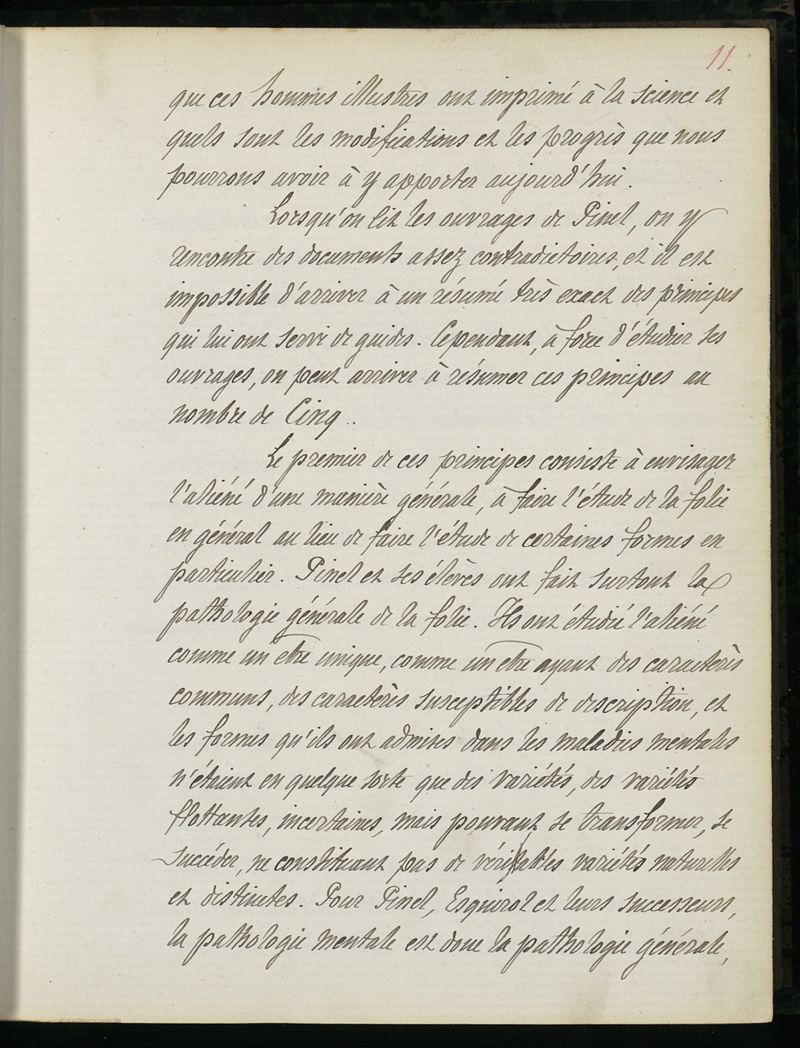 11.
que ces hommes illustres ont imprimé à la science et
quels sont les modifications et les progrès que nous
pourrons avoir à y apporter aujourd'hui.
Lorsqu'on lit les ouvrages de Pinel, on y
rencontre des documents assez contradictoires, et il est
impossible d'arriver à un résumé très exact des principes
qui lui ont servi de guides. Cependant, à force d'étudier ses
ouvrages, on peut arriver à résumer ces principes au
nombre de Cinq..
Le premier de ces principes consiste à envisager
l'aliéné d'une manière générale, à faire l'étude de la folie
en général au lieu de faire l'étude de certaines formes en
particulier. Pinel et ses élèves ont fait surtout la
pathologie générale de la folie. Ils ont étudié l'aliéné
comme un être unique, comme un être ayant des caractères
communs, des caractères susceptibles de description, et
les formes qu'ils ont admises dans les maladies mentales
n'étaient en quelque sorte que des variétés, des variétés
flottantes, incertaines, mais pouvant se transformer, se
succéder, ne constituant pas de véritables variétés naturelles
et distinctes. Pour Pinel, Esquirol et leurs successeurs,
la pathologie mentale est donc la pathologie générale,